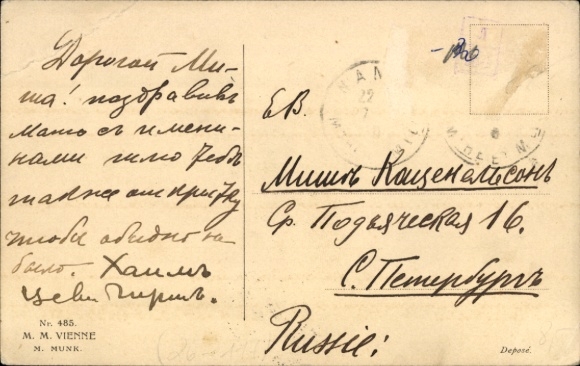 Дорогой Ми-
ша! поздравивъ
Мато съ имени-
нами шлю Тебѣ
также открытку
чтобы обидно не
было. Хаимъ
Цеви Гиршъ.
Nr. 485.
M. M. VIENNE
M. MUNK.
ЕВ.
Мишѣ Каценельсонъ
Ср. Подъяческая 16.
С. Петербургъ
Russie;
Deposé.